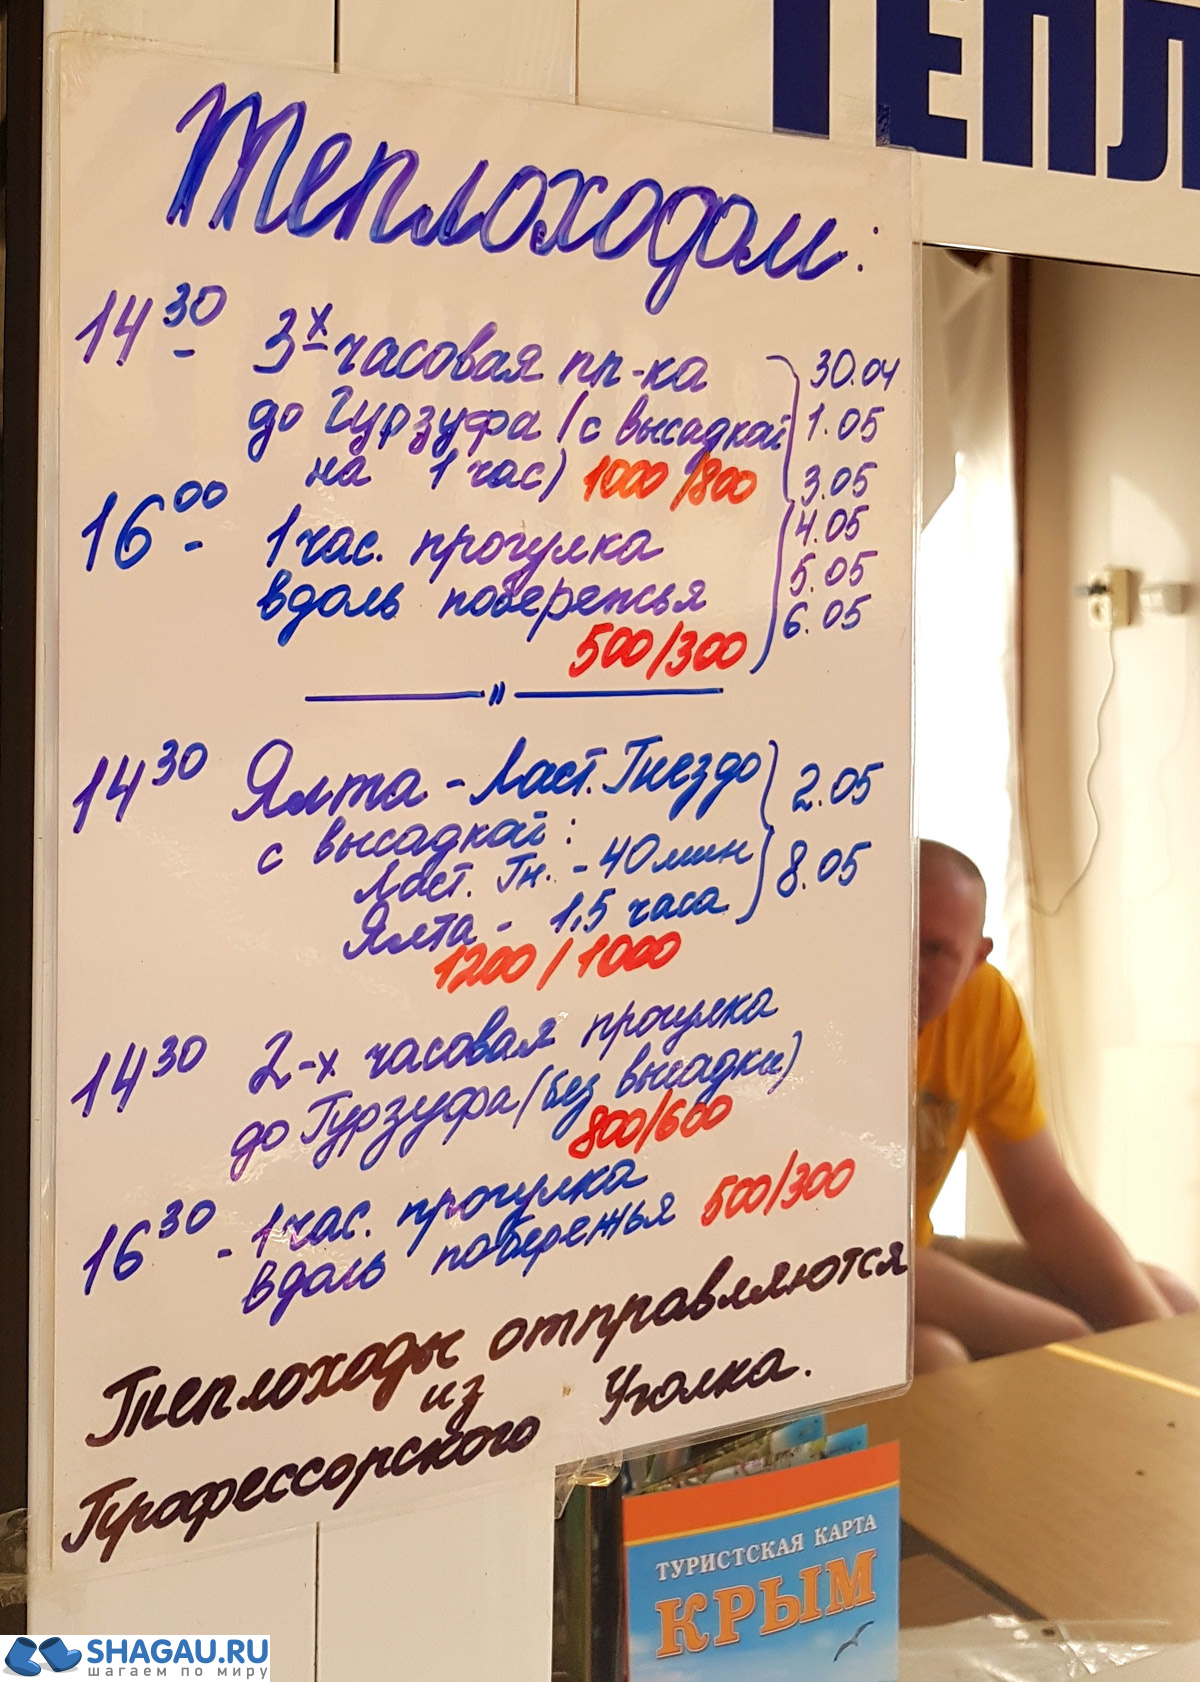 ТЕПЛ
Теплоходом:
14 30 - 3х часовая пр-ка
до Гурзуфа (с высадкой
на 1 час) 1000/800
30.04
1.05
3.05
16 00 - 1 час. прогулка
вдоль побережья
500/300
4.05
5.05
6.05
— " —
14 30 Ялта - Ласт. Гнездо
с высадкой:
Ласт. Гн. - 40 мин
Ялта - 1,5 часа
1200/1000
2.05
8.05
14 30 2-х часовая прогулка
до Гурзуфа (без высадки)
800/600
16 30 - 1 час. прогулка
вдоль побережья 500/300
Теплоходы отправляются
из
Профессорского Уголка.
ТУРИСТСКАЯ КАРТА
КРЫМ
SHAGAU.RU
шагаем по миру